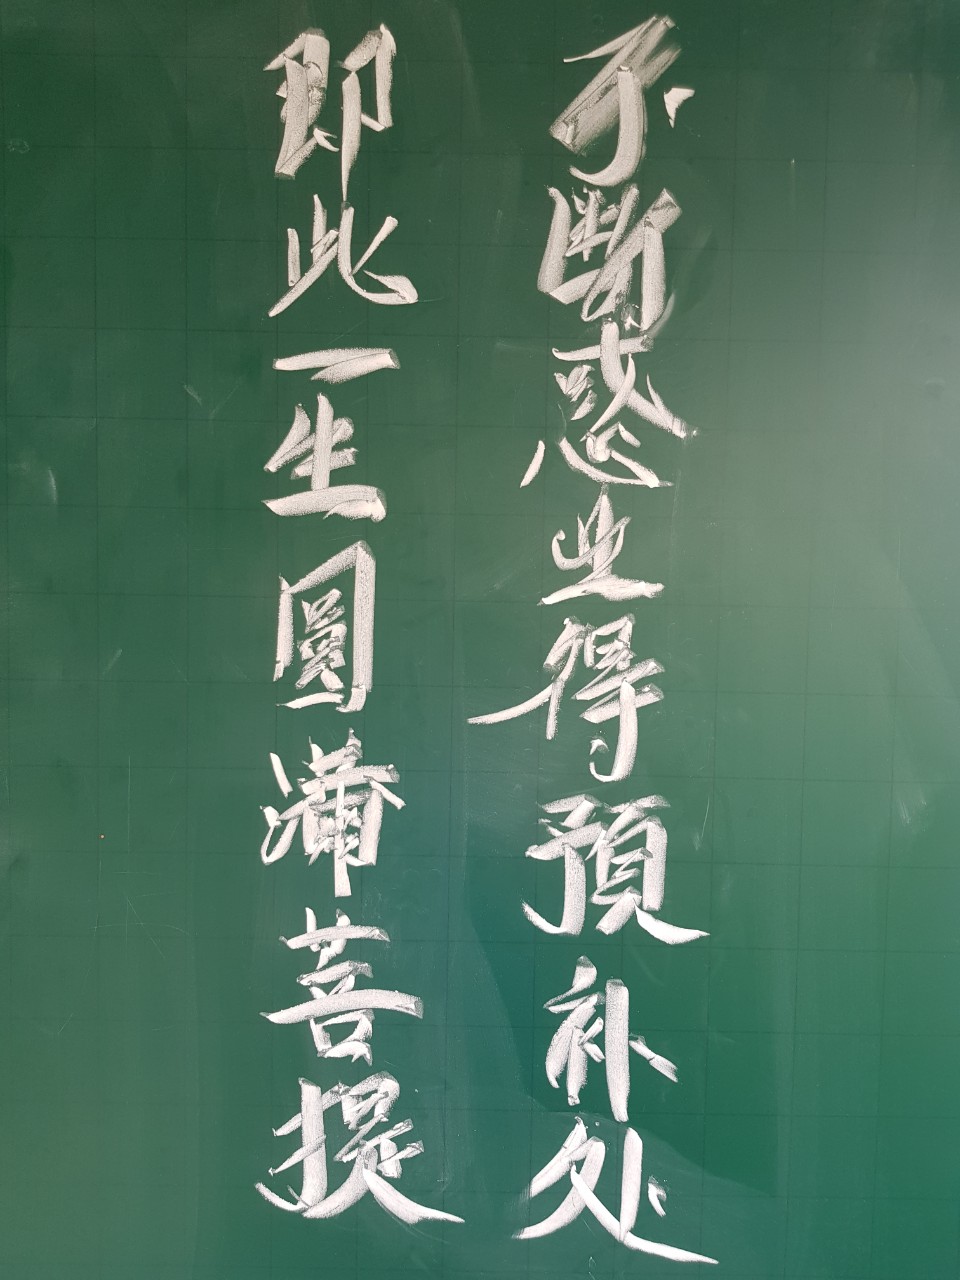 不斷惑业得預补处
即此一生圓滿菩提